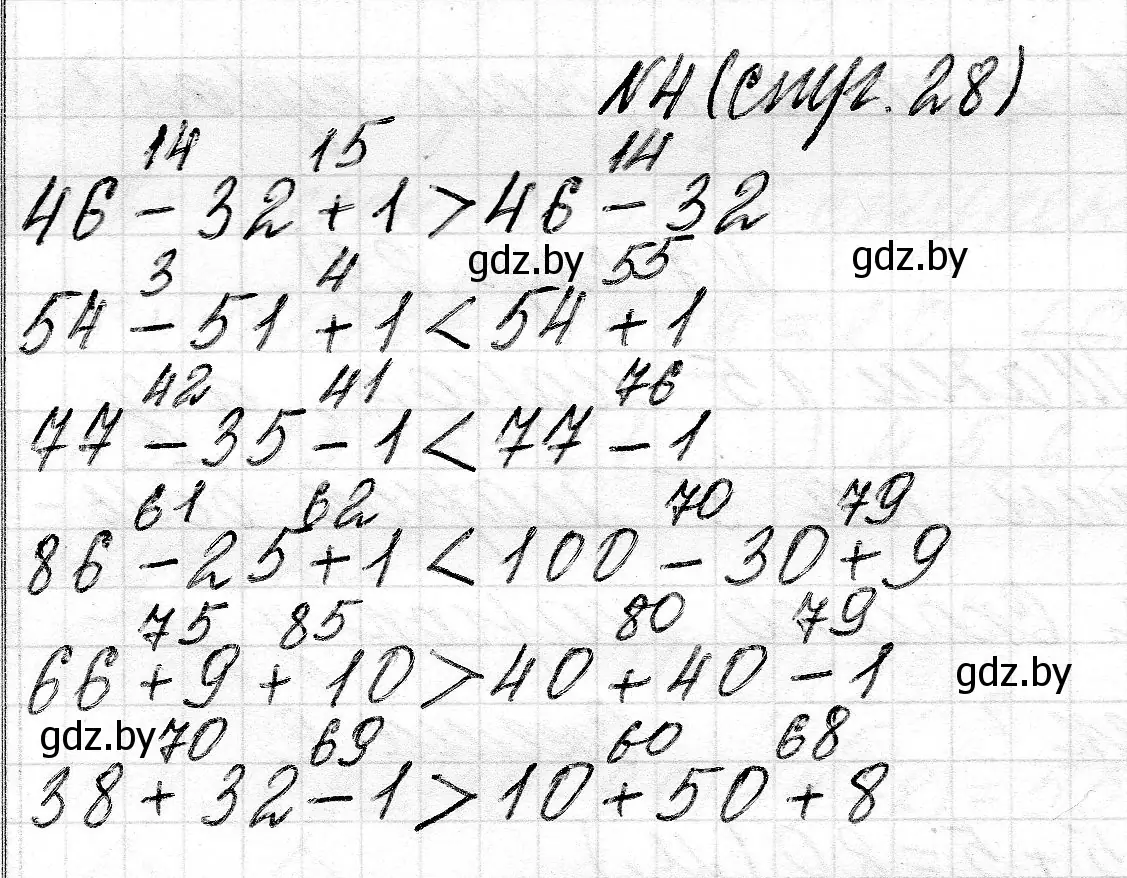 №4 (стр. 28)
14 15 14
46 - 32 + 1 > 46 - 32
gdz.by gdz.by
3 4 55
54 - 51 + 1 < 54 + 1
42 41 76
77 - 35 - 1 < 77 - 1
61 62 70 79
86 - 25 + 1 < 100 - 30 + 9
75 85 80 79
66 + 9 + 10 > 40 + 40 - 1
gdz.by
gdz.by
70 69 60 68
38 + 32 - 1 > 10 + 50 + 8